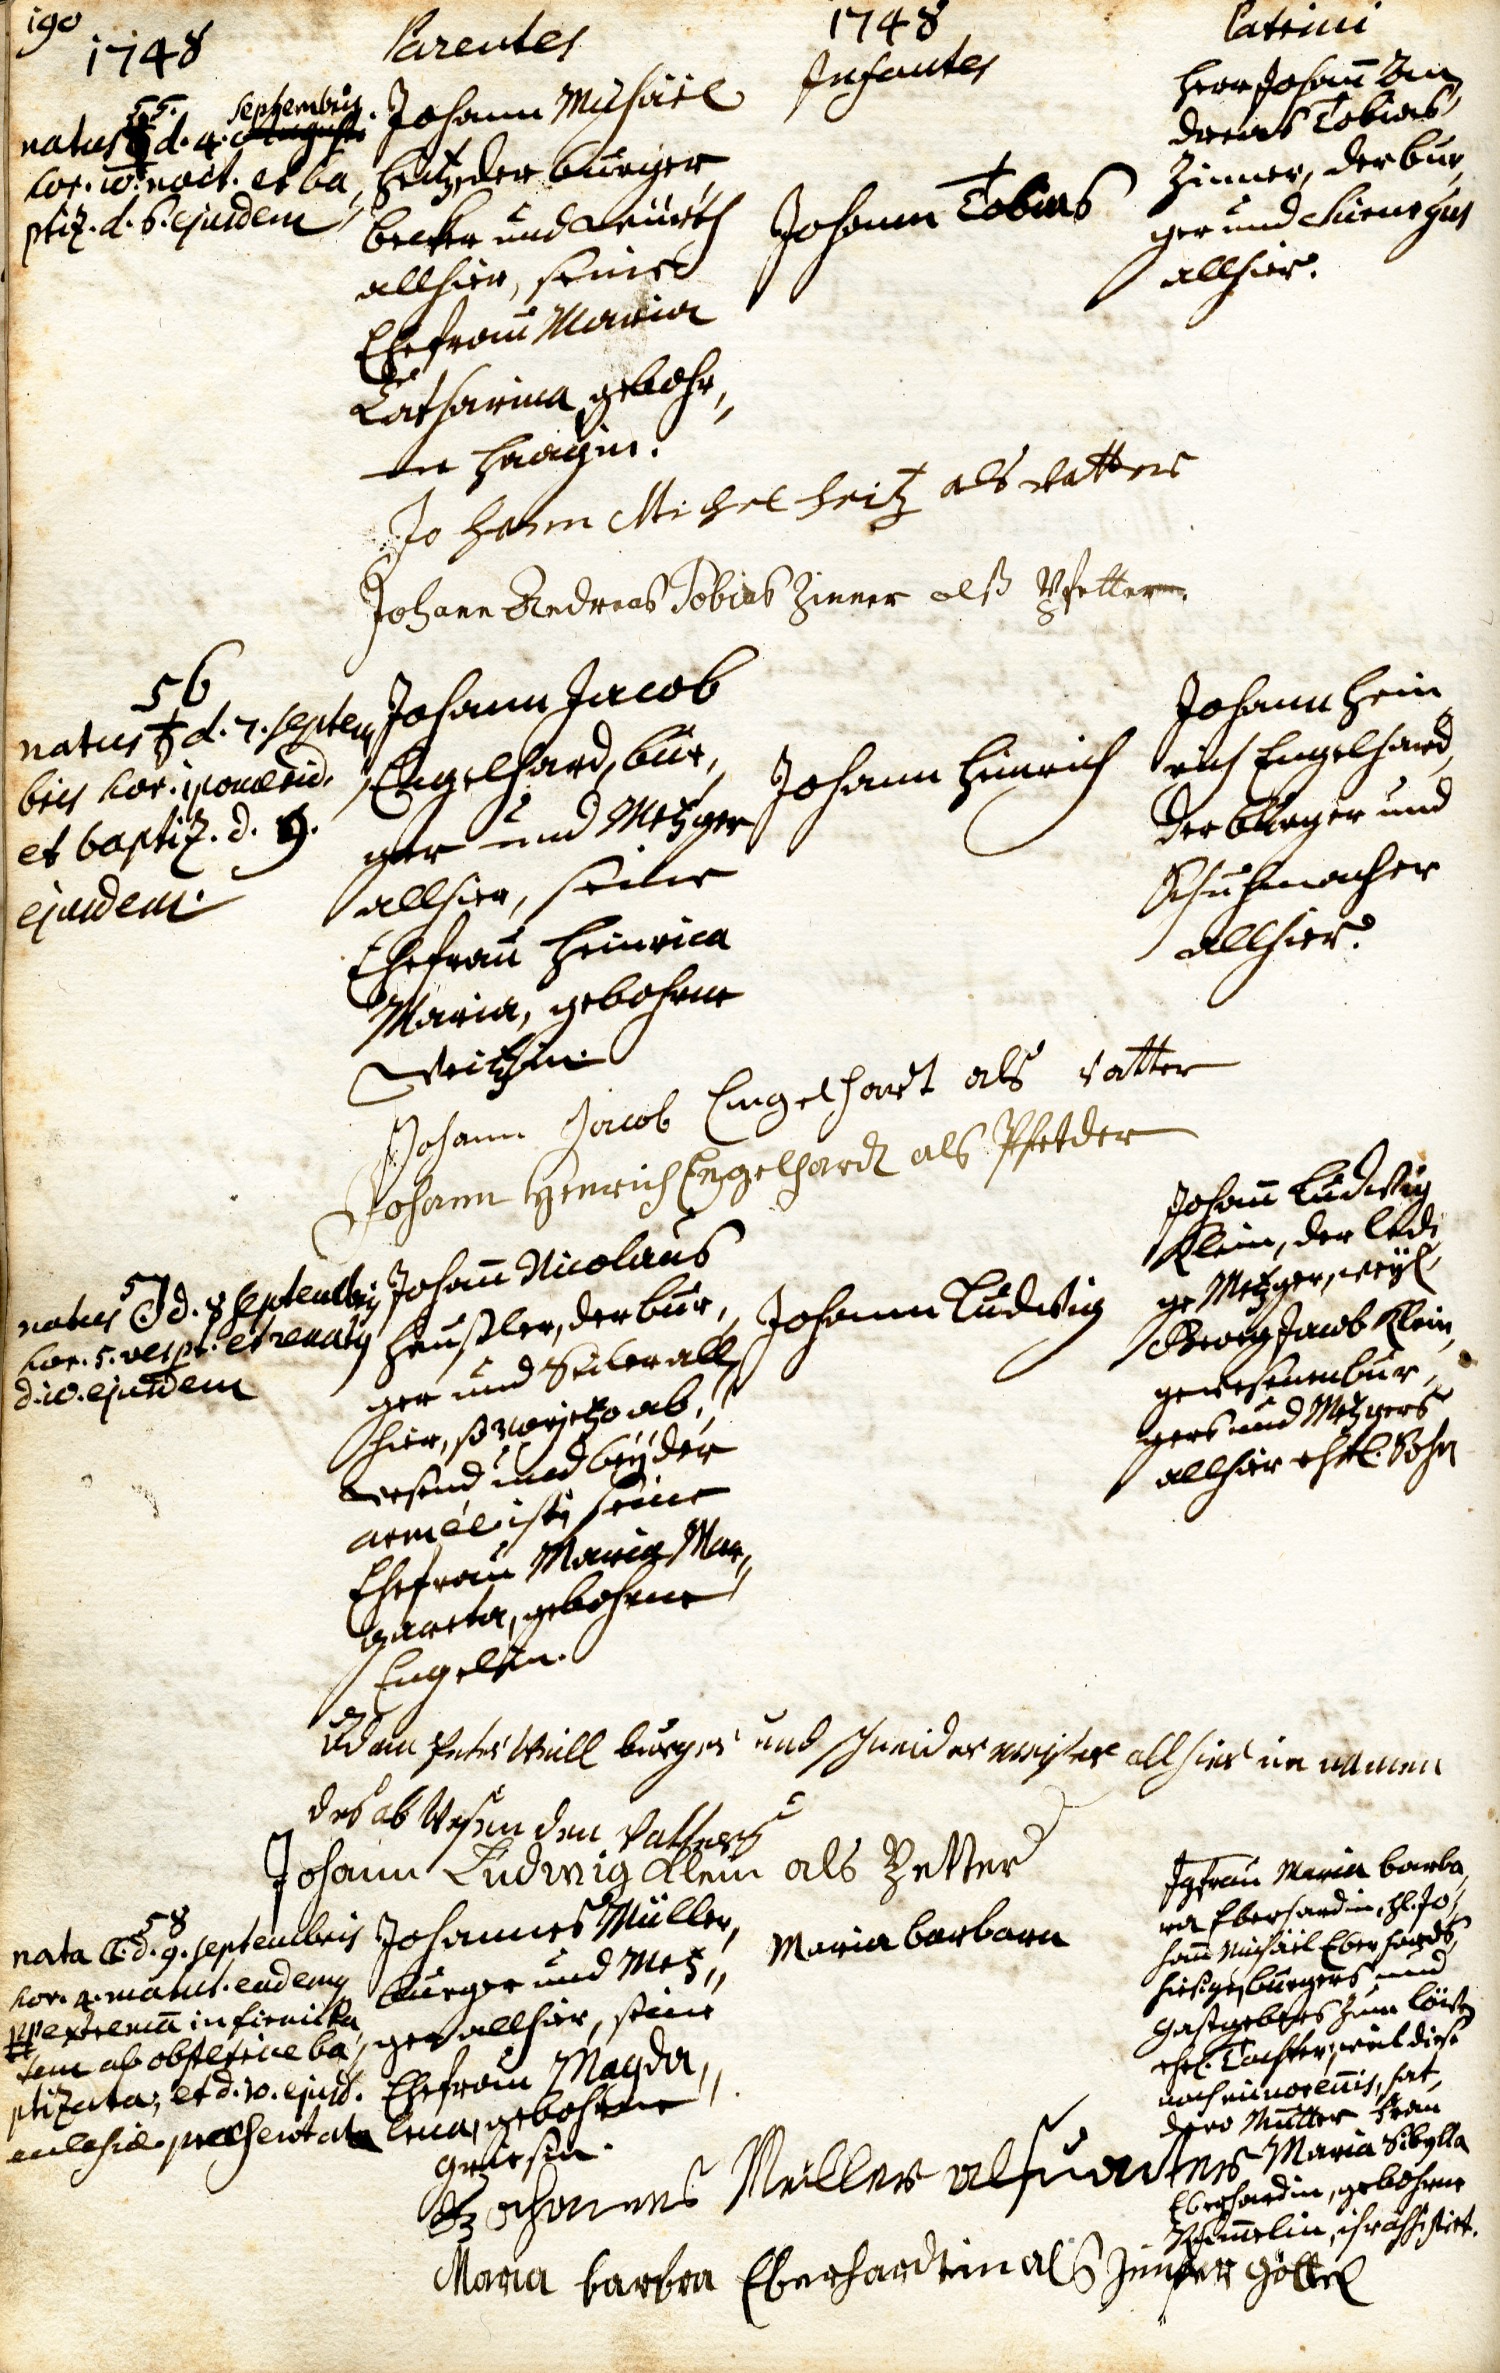 190
1748
Parentes
1748
Infantes
Patrini
55.
natus ♄ d. 4. Septembris
hor. 10. noct. et ba
ptiz. d. 6. ejusdem
Johann Michäel
Heitz, der burger
becker und
allhier, seine
Ehefrau Maria
Catharina gebohr,,
ne Haagin.
Johann Tobias
Herr Johann An
dreas Tobias
Zinner, der bur
ger und Chirurgus
allhier.
Johann Michel heitz als vatter
Johann Andreas Tobias Zinner alß Pfetter.
56
natus ♄ d. 7. Septem
bris hor. 1 pomerid.
et baptiz. d. 9.
ejusdem.
Johann Jacob
Engelhard, bur,,
ger und Metzger
allhier, seine
Ehefrau Heinrica
Maria, gebohrne
Veithin.
Johann Heinrich
Johann Hein
rich Engelhard,
der Burger und
Schuhmacher
allhier.
Johann Jacob Engelhardt als vatter
Johann Henrich Engelhardt als Pfetder
57
natus ☉ d. 8 Septembris
hor. 5. vespt. et renatus
d. 10. ejusdem
Johann Nicolaus
Heußler, der bur,,
ger und Seiler all
hier, so vorjetzo ab,,
wesend und bey der
armée ist, seine
Ehefrau Maria Mar,,
garetha, gebohrne
Engelsin.
Johann Ludwig
Johann Ludwig
Klein, der ledi
ge Metzger, weyl.
Georg Jacob Klein,
gewesenen bur,
gers und Metzgers
allhier ehel. Sohn
Adam Peter Will burger und schneider meister allhier im namen
des ab wesenden Vatters
Johann Ludwig Klein als Petter
58
nata ☾ d. 9. Septembris
hor. 4. matut. eademq
extremā infirmita
tem ab obstetrice ba,,
ptizata, et d. 10. ejusd.
ecclesiæ præsentata
Johannes Müller,
burger und Metz,,
ger allhier, seine
Ehefrau Magda,,
lena, gebohrne
Maria barbara
Jgfrau Maria barba,
ra Eberhardin, H. Jo,
hann Michäel Eberhards,
hiesigen burgers und
Gastgebers zum Löwen
ehel. Tochter, weil diese
noch minorennis, hat
dero Mutter Frau
Maria Sibylla
Eberhardin, gebohrne
ihr assistirt.
Johannes Müller als vatter
Maria barbra Eberhardtin als Göttel